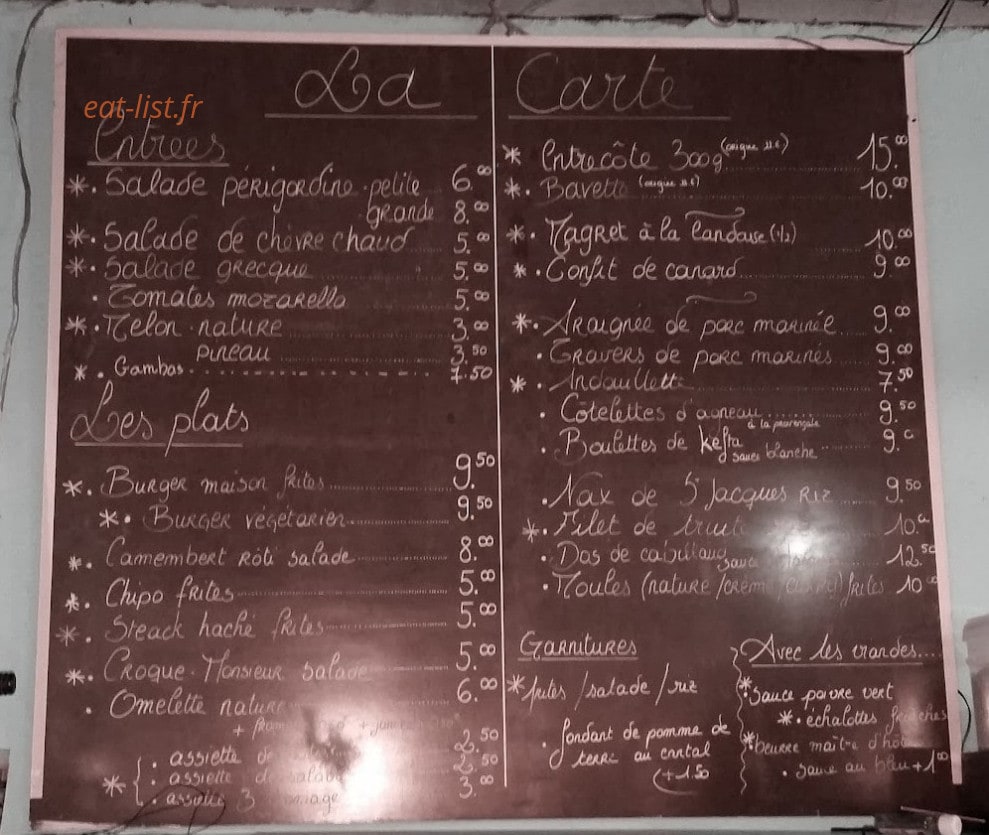 La Carte
eat-list.fr
Entrées
*. Salade périgordine. petite 6.00
grande 8.00
*. Salade de chèvre chaud 5.00
*. Salade grecque 5.00
. Tomates mozarella 5.00
*. Melon. nature 3.00
pineau 3.50
*. Gambas 7.50
Les plats
*. Burger maison frites 9.50
*. Burger végétarien 9.50
*. Camembert Rôti salade 8.00
*. Chipo frites 5.00
*. Steack haché frites 5.00
*. Croque. Monsieur salade 5.00
. Omelette nature 6.00
2.50
. assiette de 2.50
* . assiette de salade 3.00
. assiette 3
* Entrecôte 300g 15.00
*. Bavette 10.00
*. Magret à la landaise (1/2) 10.00
*. Confit de canard 9.00
*. Araignée de porc marinée 9.00
. Travers de porc marinés 9.00
*. Andouillette 7.50
. Côtelettes d'agneau 9.50
à la provençale
. Boulettes de kefta 9.
sauce blanche
. Nax de St Jacques Riz 9.50
*. Filet de truite 10.
. Dos de cabillaud sauce 12.50
. Moules (nature/crème/curry) frites 10
Garnitures
* frites/salade/riz
. fondant de pomme de
terre au cantal
(+1.50
Avec les viandes....
*. sauce poivre vert
*. échalottes fraîches
* beurre maître d'hô
. sauce au bleu +1.00